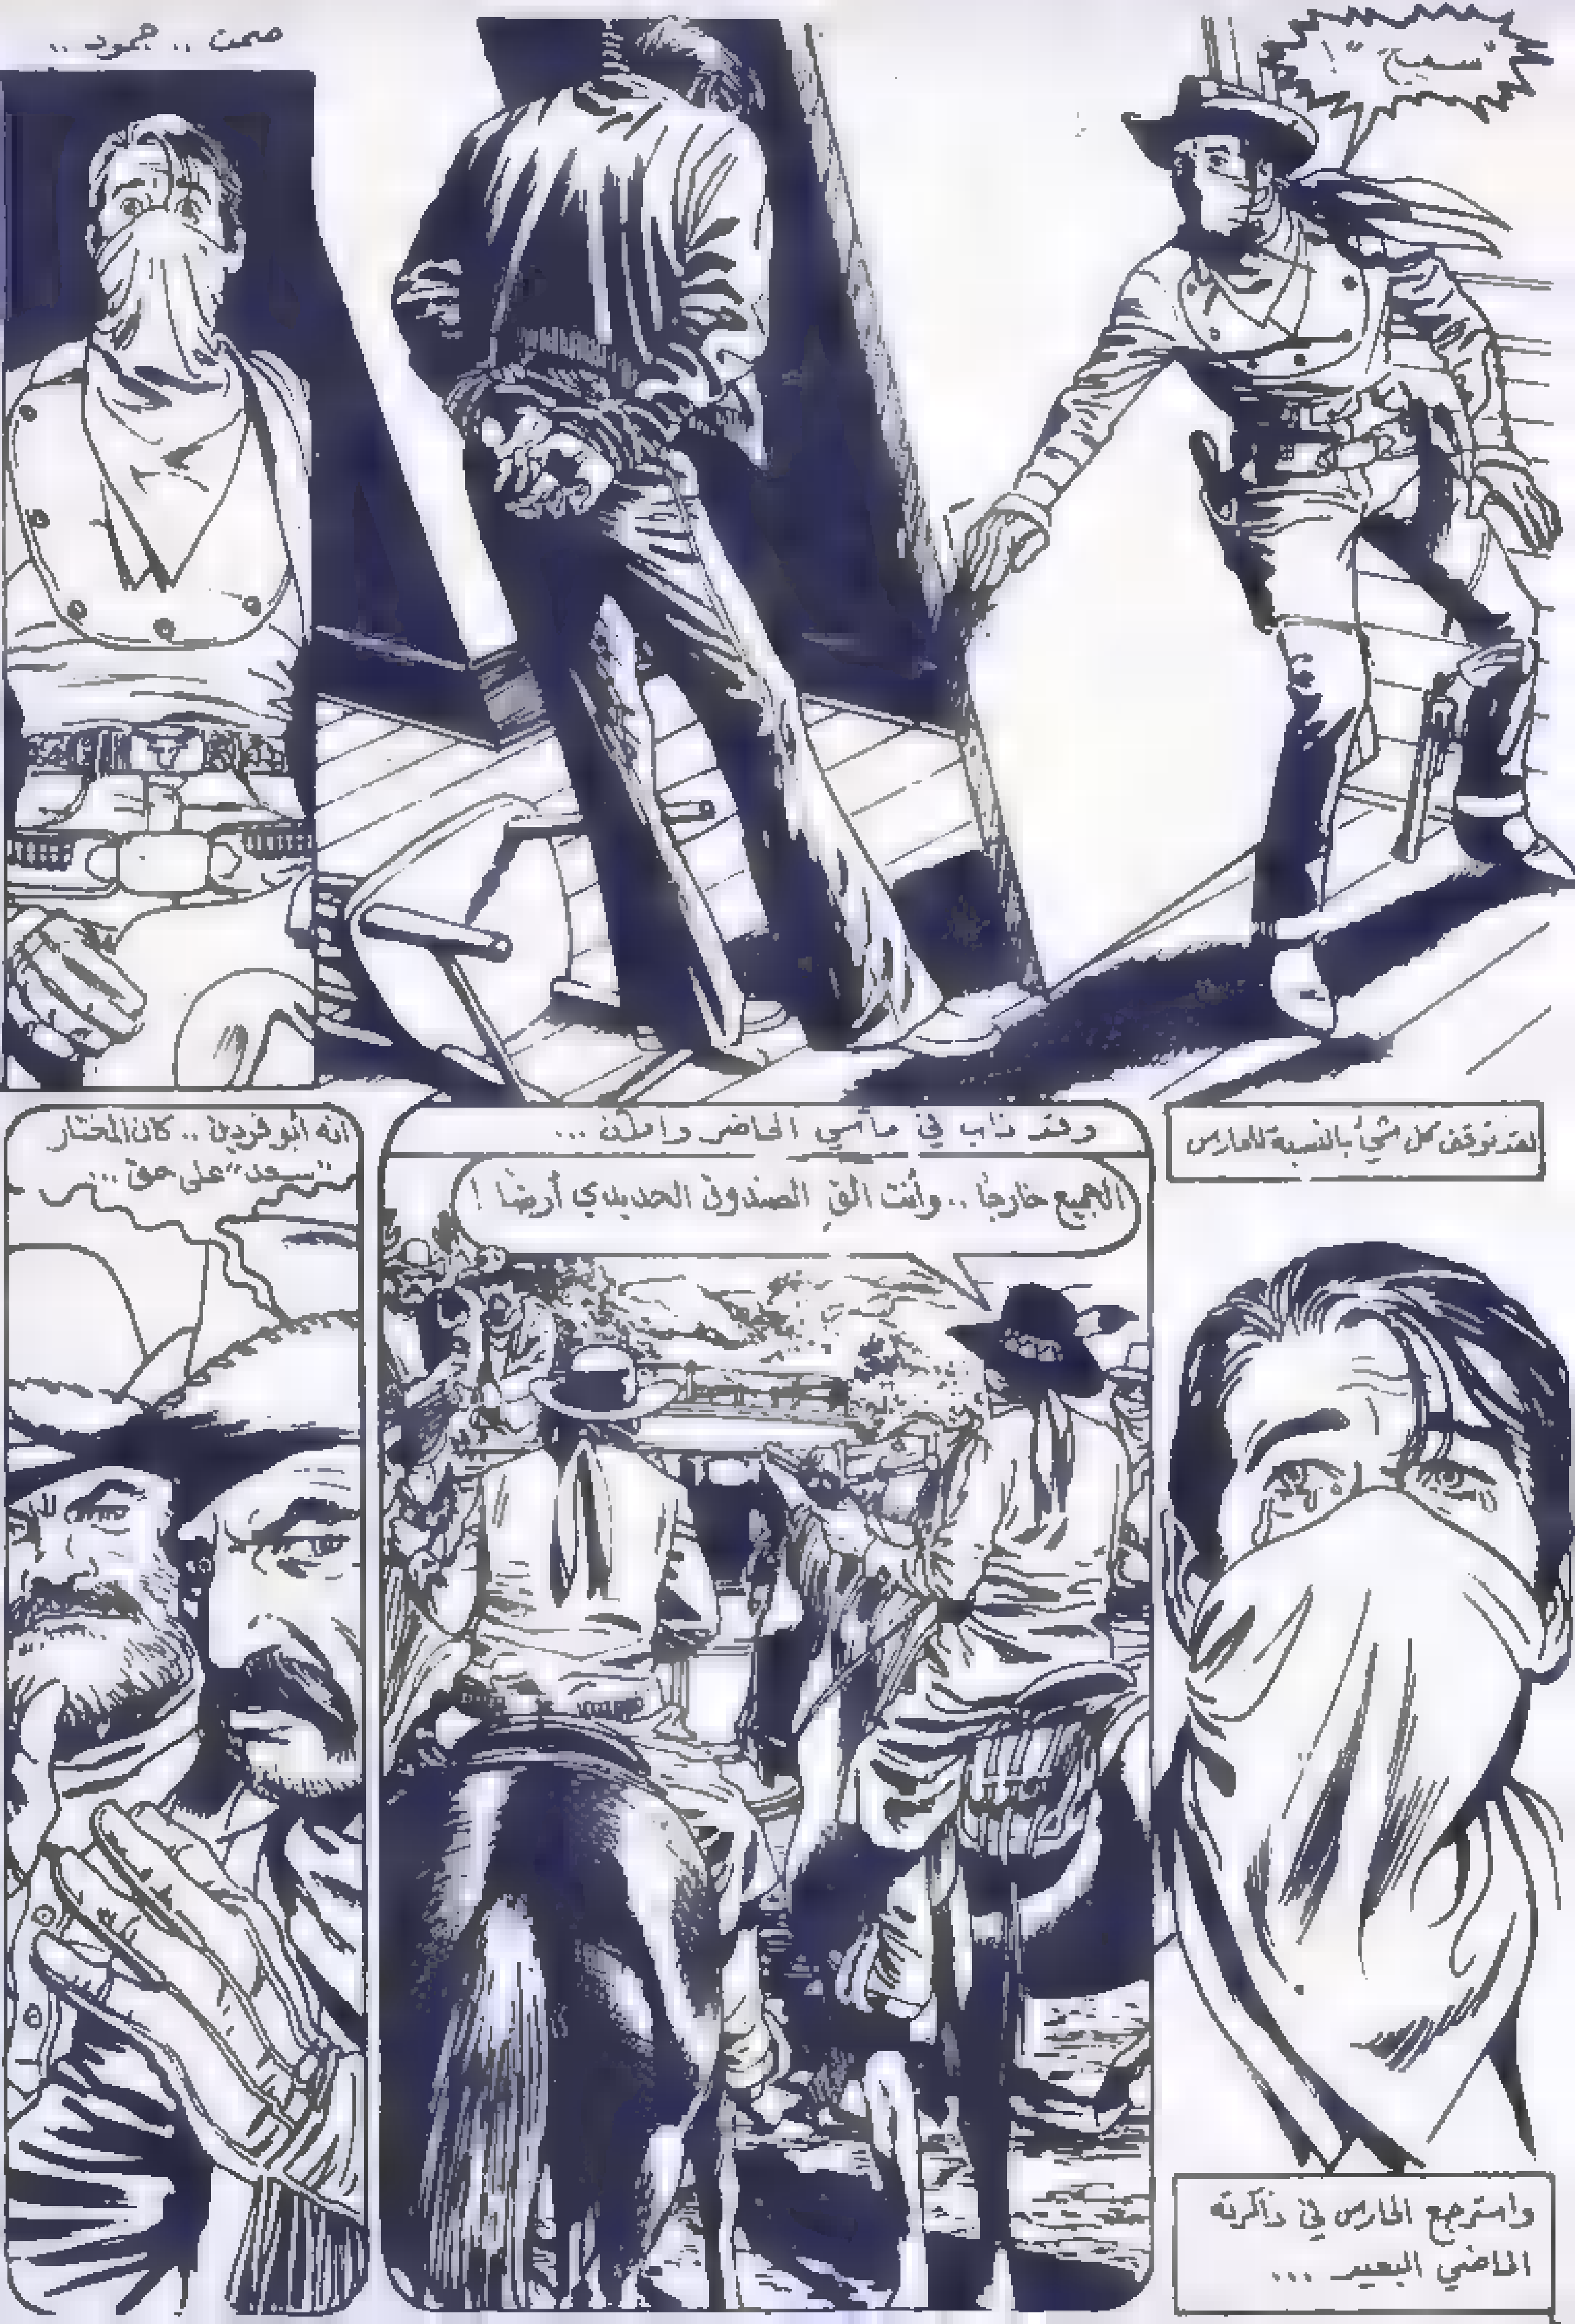 "سميح" !
صمت .. جمود ..
لقد توقف كل شيء بالنسبة للفارس
واسترجع الفارس في ذاكرته
الماضي البعيد ...
وقد ذاب في مآسي الحاضر وامتزن ...
الجميع خارجًا .. وأنت الق الصندوق الحديدي أرضًا !
انه أبو فردين .. كان المختار
"سعد" على حق ...